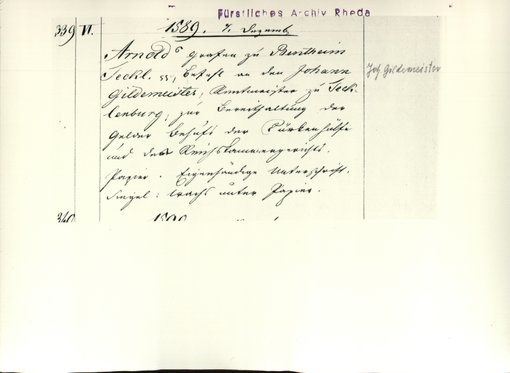 Fürstliches Archiv Rheda
339 VI. 1589. 7. Dezemb.
Arnolds Grafen zu Bentheim
Teckl. pp. Befehl an den Johann
Gildemeister, Rentmeister zu Teck-
lenburg, zur Bereithaltung der
Gelder behufs der Türkenhülfe
und des Reichskammergerichts.
Papier. Eigenhändige Unterschrift.
Siegel: Wachs unter Papier.
Joh. Gildemeister
340